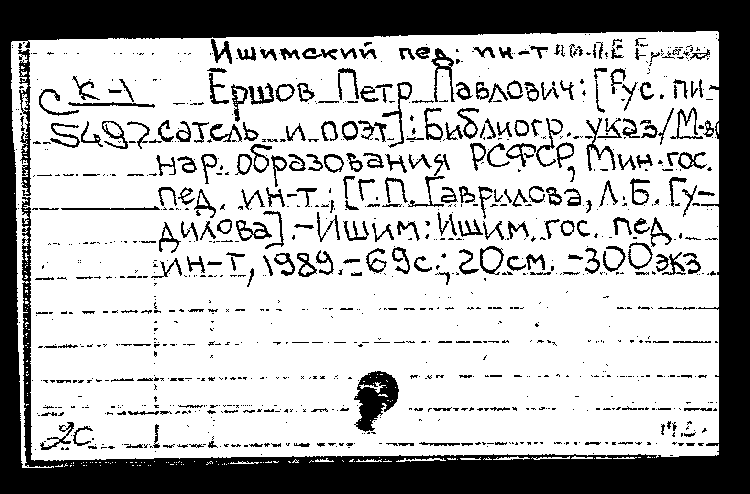 Ишимский пед. ин-т им. П.П. Ершова
К-1
С 5497
Ершов Петр Павлович: [Рус. пи-
сатель и поэт]: Библиогр. указ./М-во
нар. образования РСФСР, Мин. гос.
пед. ин-т; [Г.П. Гаврилова, Л.Б. Гу-
дилова]. - Ишим: Ишим. гос. пед.
ин-т, 1989. - 69с.; 20см. - 300экз
2с